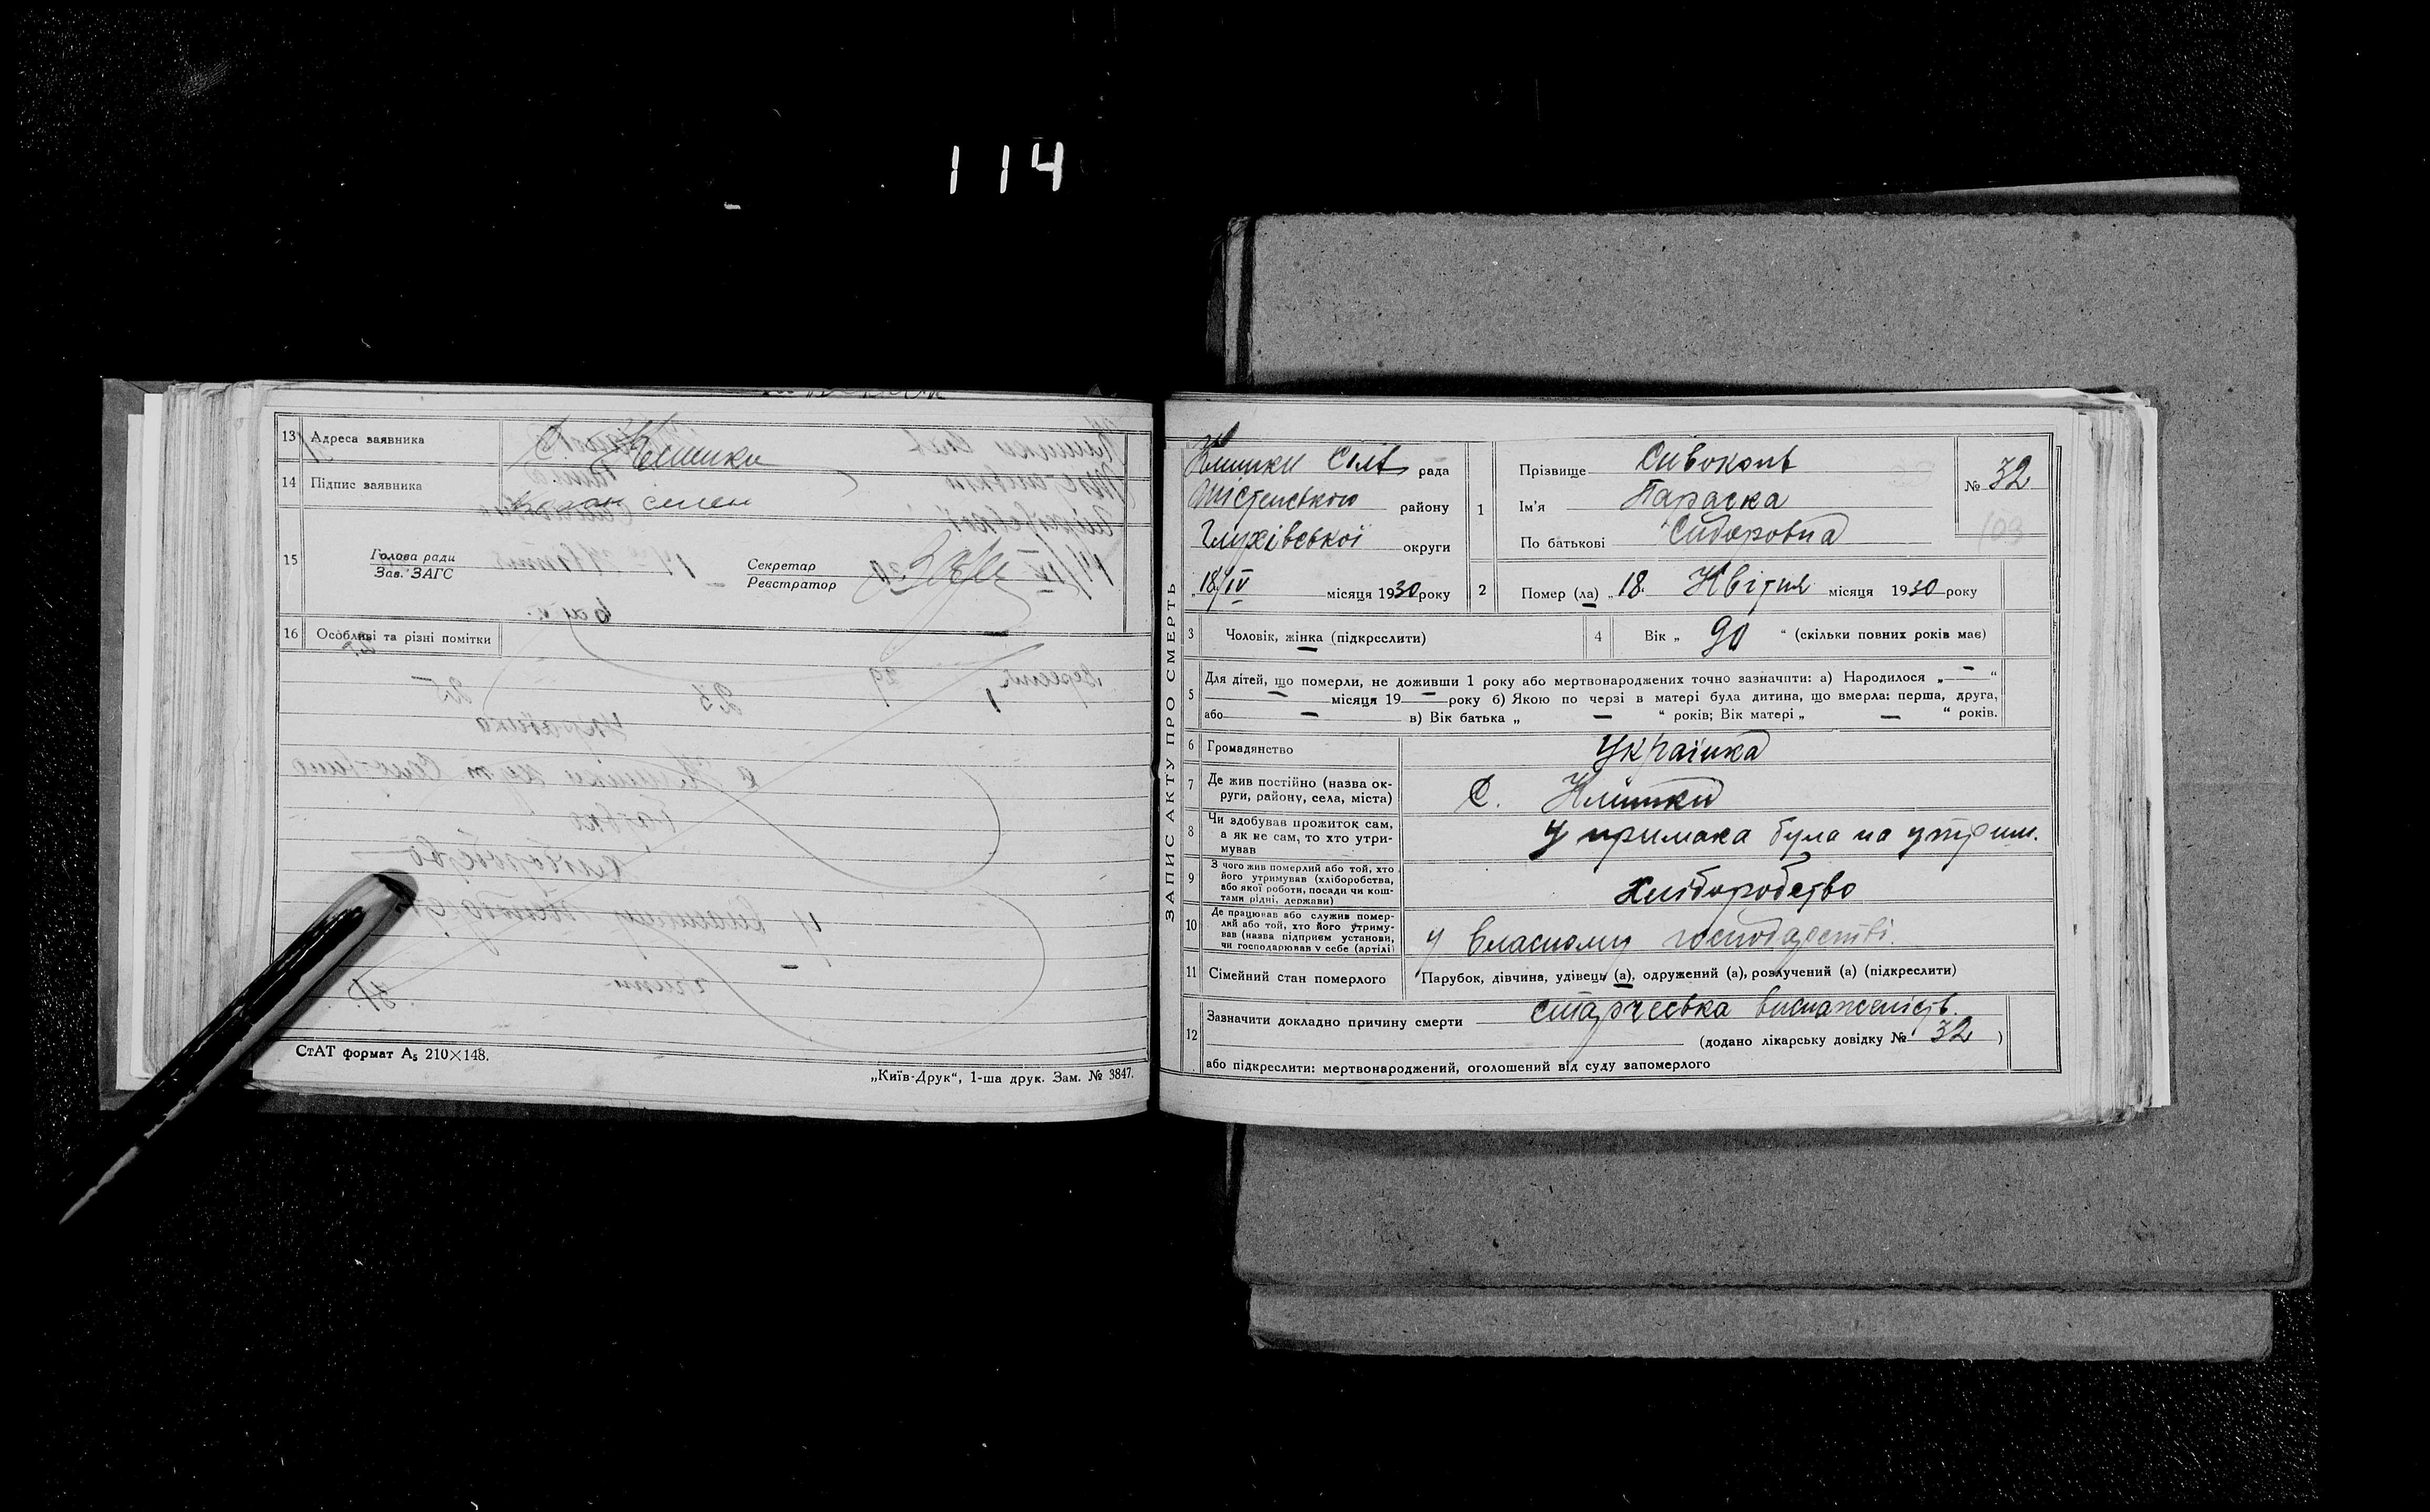 114
13 Адреса заявника С. Клишки
14 Підпис заявника Козан семен
15 Голова ради
Зав. ЗАГС
Секретар
Реєстратор
16 Особливі та різні помітки
СтАТ формат А5 210×148.
„Київ-Друк“, 1-ша друк. Зам. № 3847.
ЗАПИС АКТУ ПРО СМЕРТЬ
Клишки Сілв рада
Шістенського району
Глухівської округи
„18/IV місяця 1930 року
1 Прізвище Сивоконь
Ім'я Параска
По батькові Сидоровна
№ 32
109
2 Помер (ла) „18. Квітня місяця 1930 року
3 Чоловік, жінка (підкреслити)
4 Вік „ 90 “ (скільки повних років має)
5 Для дітей, що померли, не доживши 1 року або мертвонароджених точно зазначити: а) Народилося „ — “
— місяця 19 — року б) Якою по черзі в матері була дитина, що вмерла: перша, друга,
або — в) Вік батька „ — “ років; Вік матері „ — “ років.
6 Громадянство Українка
7 Де жив постійно (назва ок-
руги, району, села, міста) С. Клишки
8 Чи здобував прожиток сам,
а як не сам, то хто утри-
мував У примака була на утрим.
9 З чого жив померлий або той, хто
його утримував (хліборобства,
або якої роботи, посади чи кош-
тами рідні, держави) Хліборобство
10 Де працював або служив помер-
лий або той, хто його утриму-
вав (назва підприєм установи,
чи господарював у себе (артілі) у власному господарстві.
11 Сімейний стан померлого Парубок, дівчина, удівець (а), одружений (а), розлучений (а) (підкреслити)
12 Зазначити докладно причину смерти старческа виснаженість.
(додано лікарську довідку № 32 )
або підкреслити: мертвонароджений, оголошений від суду запомерлого